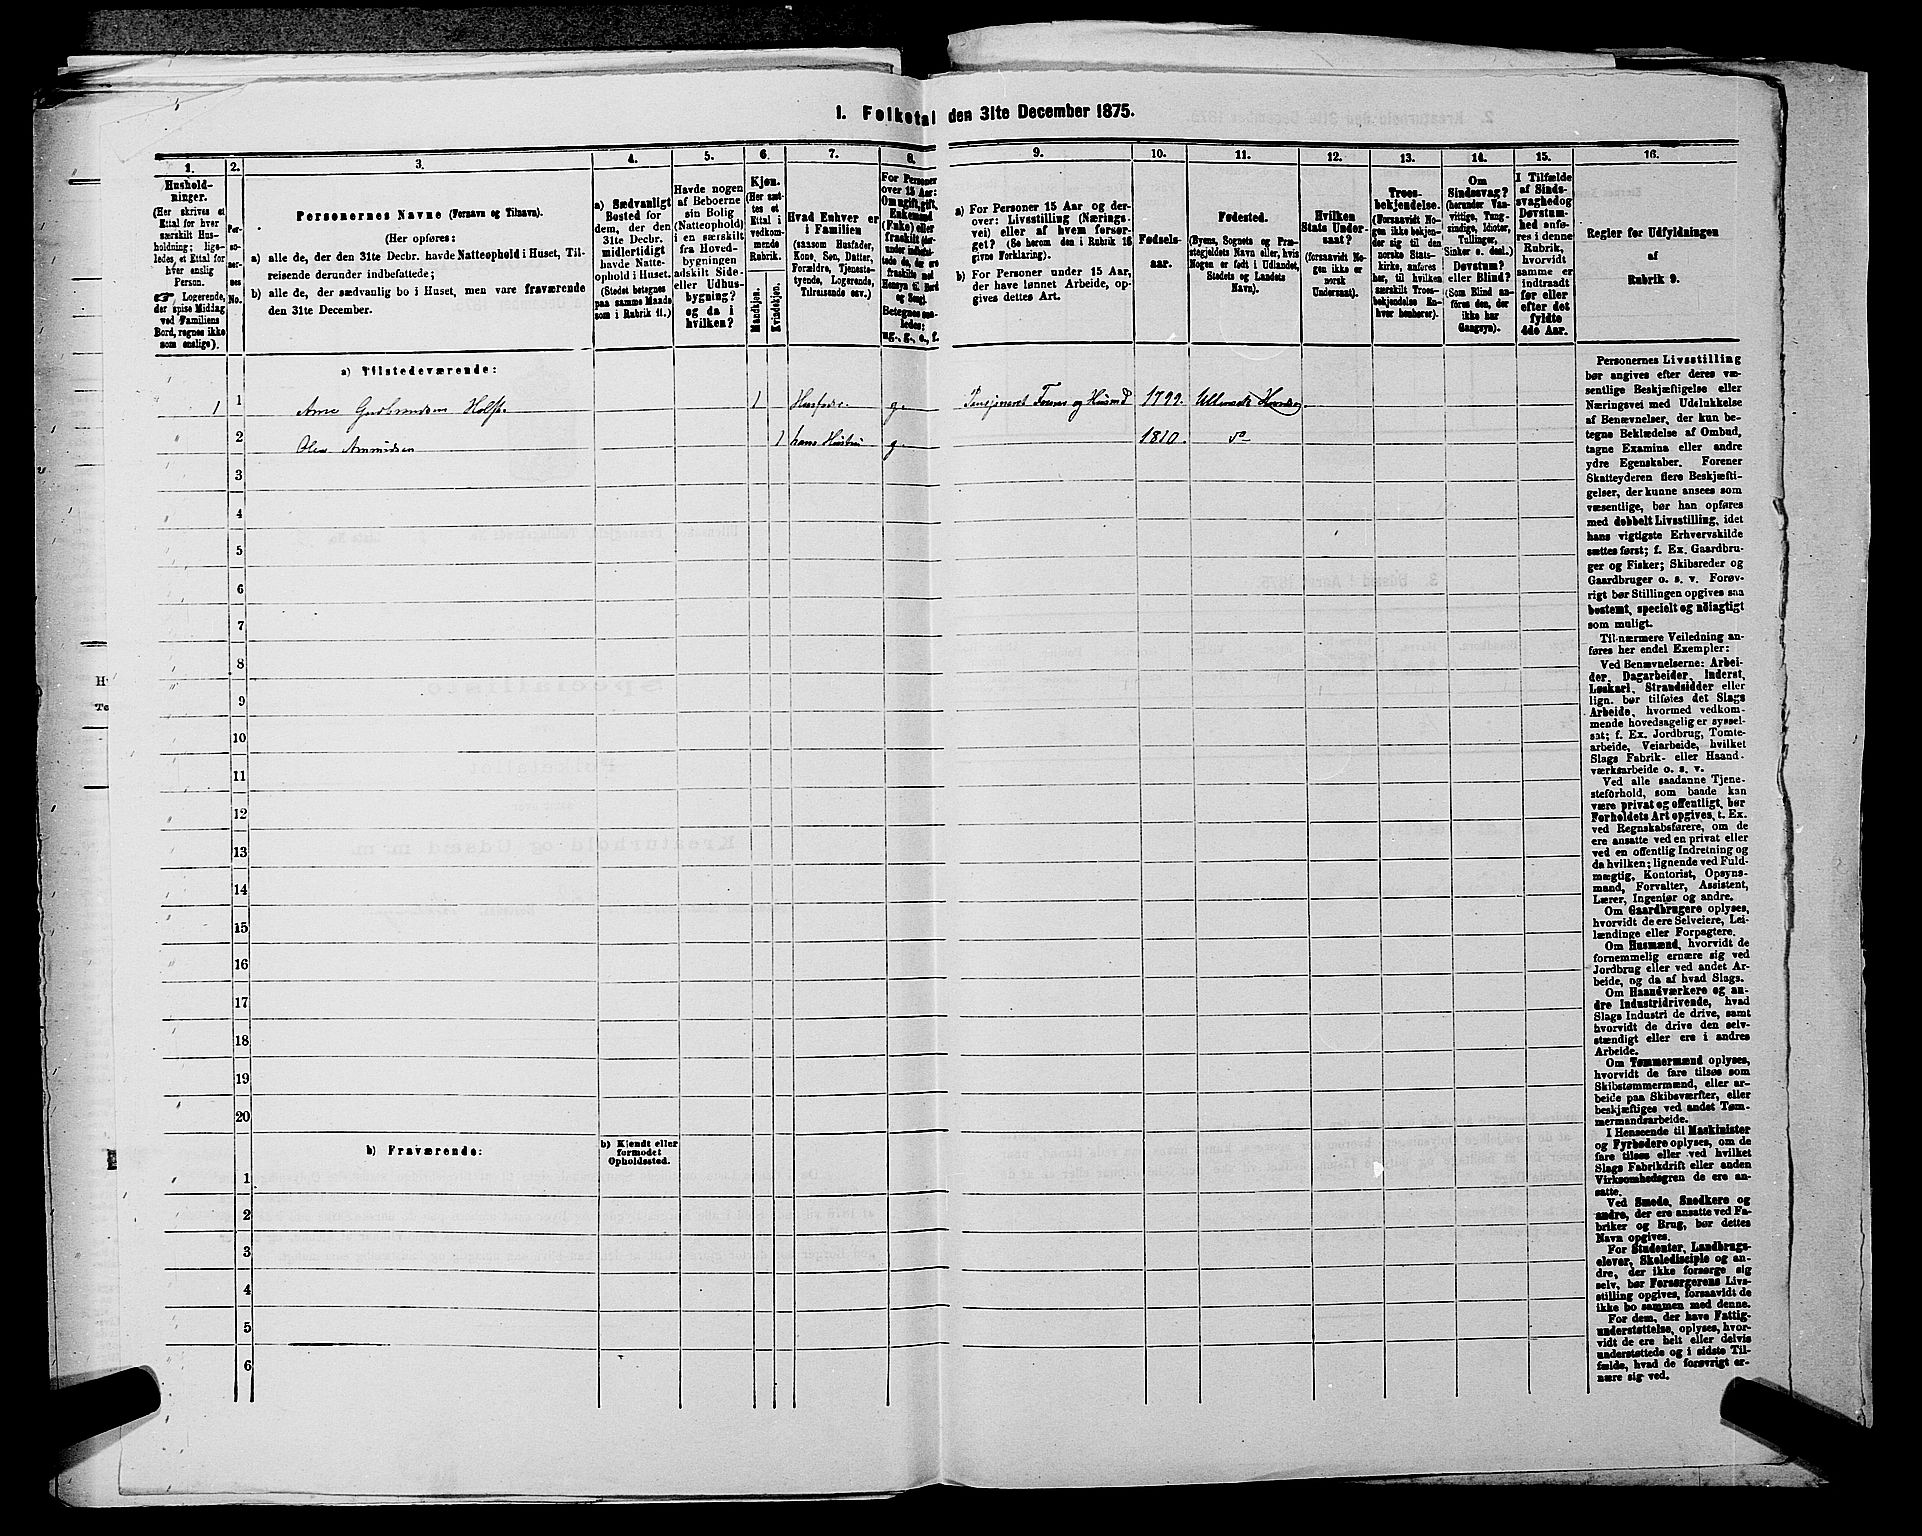 1. Folketal den 31te December 1875.
1.
2.
3.
4.
5.
6.
7.
8.
9.
10.
11.
12.
13.
14.
15.
16.
Hushold-
ninger.
(Her skrives et
Ettal for hver
særskilt Hus-
holdning; lige-
ledes, et Ettal for
hver enslig
Person.
☞ Logerende,
der spise Middag
ved Familiens
Bord, regnes ikke
som enslige).
Per-
so-
ner-
nes
No.
Personernes Navne (Fornavn og Tilnavn).
(Her opføres:
a) alle de, der den 31te Decbr. havde Natteophold i Huset, Til-
reisende derunder indbefattede;
b) alle de, der sædvanlig bo i Huset, men vare fraværende
den 31te December.
a) Sædvanligt
Bosted for
dem, der den
31te Decbr.
midlertidigt
havde Natte-
ophold i Huset.
(Stedet betegnes
paa samme Maade
som i Rubrik 11.)
Havde nogen
af Beboerne
sin Bolig
(Natteophold)
i en særskilt
fra Hoved-
bygningen
adskilt Side-
eller Udhus-
bygning?
og da i
hvilken?
Kjøn.
(Her sæt-
tes et
Ettal i
vedkom-
mende
Rubrik.
Mandkjøn.
Kvindekjøn.
Hvad Enhver er
i Familien
(saasom Husfader,
Kone, Søn, Datter,
Forældre, Tjeneste-
tyende, Logerende,
Tilreisende osv.)
For Personer
over 15 Aar:
Om ugift, gift,
Enkemand
(Enke) eller
fraskilt
Betegnes saa-
ledes:
ug., g., e., f.
a) For Personer 15 Aar og der-
over: Livsstilling (Nærings-
vei) eller af hvem forsør-
get? (Se herom den i Rubrik 16
givne Forklaring).
b) For Personer under 15 Aar,
der have lønnet Arbeide, op-
gives dettes Art.
Fødsels-
aar.
Fødested.
(Byens, Sognets og Præ-
stegjeldets Navn eller, hvis
Nogen er født i Udlandet,
Stedets og Landets
Navn).
Hvilken
Stats Under-
saat?
(forsaavidt No-
gen ikke er
norsk
Undersaat).
Troes-
bekjendelse.
(Forsaavidt No-
gen ikke bekjen-
der sig til den
norske Stats-
kirke, anføres
her, til hvilken
særskilt Troes-
bekjendelse En-
hver henhører).
Om
Sindssvag?
(herunder Van-
vittige, Tung-
sindige, Idioter,
Tullinger,
Sinker o. desl.).
Døvstum?
eller Blind?
(Som Blind an-
føres den, der
ikke har
Gangsyn).
I Tilfælde
af Sinds-
svaghed og
Døvstum-
hed anfø-
res i denne
Rubrik,
hvorvidt
samme er
indtraadt
før eller
efter det
fyldte
4de Aar.
Regler for Udfyldningen
af
Rubrik 9.
a) Tilstedeværende:
1 1 Arne Gudbrandsen Holst. 1 Husfader. g. Pensioneret 1799. Ullensaker
2 Olea Amundsen 1 hans Hustru g. 1810. do
3
4
5
6
7
8
9
10
11
12
13
14
15
16
17
18
19
20
b) Fraværende:
b) Kjendt eller
formodet
Opholdssted.
1
2
3
4
5
6
Personernes Livsstilling
bør angives efter deres væ-
sentlige Beskjæftigelse eller
Næringsvei med Udelukkelse
af Benævnelser, der kun be-
tegne Beklædelse af Ombud,
tagne Examina eller andre
ydre Egenskaber. Forener
Skatteyderen flere Beskjæfti-
gelser, der kunne ansees som
væsentlige, bør han opføres
med dobbelt Livsstilling, idet
hans vigtigste Erhvervskilde
sættes først; f. Ex. Gaardbru-
ger og Fisker; Skibsreder og
Gaardbruger o. s. v. Forøv-
rigt bør Stillingen opgives saa
bestemt, specielt og nöiagtigt
som muligt.
Til nærmere Veiledning an-
føres her endel Exempler:
Ved Benævnelserne: Arbei-
der, Dagarbeider, Inderst,
Løskarl, Strandsidder eller
lign. bør tilføies det Slags
Arbeide, hvormed vedkom-
mende hovedsagelig er syssel-
sat; f. Ex. Jordbrug, Tomte-
arbeide, Veiarbeide, hvilket
Slags Fabrik- eller Haand-
værksarbeide o. s. v.
Ved alle saadanne Tjene-
steforhold, som baade kan
være privat og offentligt, bør
Forholdets Art opgives, t. Ex.
ved Regnskabsførere, om de
ere ansatte ved en privat eller
ved en offentlig Indretning og
da hvilken; lignende ved Fuld-
mægtig, Kontorist, Opsyns-
mand, Forvalter, Assistent,
Lærer, Ingeniør og andre.
Om Gaardbrugere oplyses,
hvorvidt de ere Selveiere, Lei-
lændinge eller Forpagtere.
Om Husmænd, hvorvidt de
fornemmelig ernære sig ved
Jordbrug eller ved andet Ar-
beide, og da af hvad Slags.
Om Haandværkere og an-
dre Industridrivende, hvad
Slags Industri de drive, samt
hvorvidt de drive den selv-
stændigt eller ere i andres
Arbeide.
Om Tømmermænd oplyses,
hvorvidt de fare tilsøs som
Skibstømmermænd, eller ar-
beide paa Skibsværfter, eller
beskjæftiges ved andet Tøm-
mermandsarbeide.
I Henseende til Maskinister
og Fyrbødere oplyses, om de
fare tilsøs eller ved hvilket
Slags Fabrikdrift eller anden
Virksomhedsgren de ere an-
satte.
Ved Smede, Snedkere og
andre, der ere ansatte ved Fa-
briker og Brug, bør dettes
Navn opgives.
For Studenter, Landbrugs-
elever, Skoledisciple og an-
dre, der ikke forsørge sig
selv, bør Forsørgerens Livs-
stilling opgives, forsaavidt de
ikke bo sammen med denne.
For dem, der have Fattig-
understøttelse, oplyses, hvor-
vidt de ere helt eller delvis
understøttede og i sidste Til-
fælde, hvad de forøvrigt er-
nære sig ved.